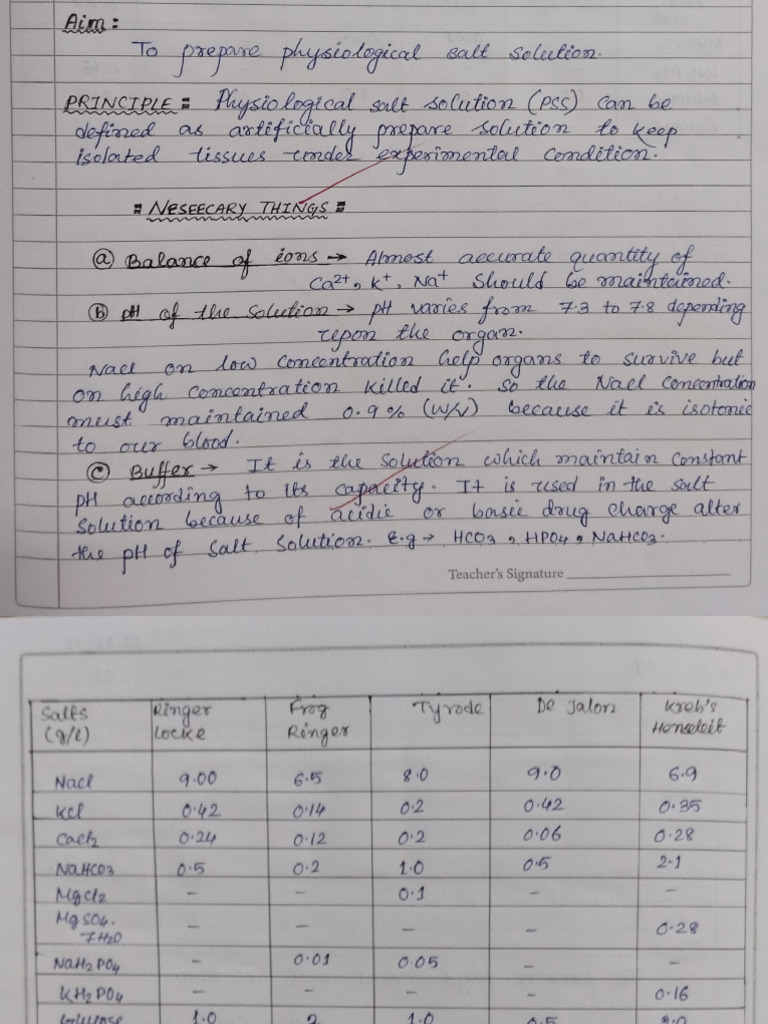 Aim:
To prepare physiological salt solution.
PRINCIPLE: Physiological salt solution (PSS) can be
defined as artificially prepare solution to keep
isolated tissues under experimental condition.
= NESEECARY THINGS =
(a) Balance of ions → Almost accurate quantity of
Ca2+, K+, Na+ should be maintained.
(B) pH of the solution → pH varies from 7.3 to 7.8 depending
upon the organ.
Nacl on low concentration help organs to survive but
on high concentration killed it. So the Nacl concentration
must maintained 0.9% (W/V) because it is isotonic
to our blood.
(C) Buffer → It is the solution which maintain constant
pH according to its capacity. It is used in the salt
solution because of acidic or basic drug charge alter
the pH of salt solution. E.g → HCO3, HPO4, NaHCO3.
Teacher's Signature
Salts (g/l) Ringer Locke Frog Ringer Tyrode De Jalon Kreb's Henseleit
Nacl 9.00 6.5 8.0 9.0 6.9
Kcl 0.42 0.14 0.2 0.42 0.35
Cacl2 0.24 0.12 0.2 0.06 0.28
NaHCO3 0.5 0.2 1.0 0.5 2.1
Mgcl2 – – 0.1 – –
MgSO4. 7H2O – – – – 0.28
NaH2PO4 – 0.01 0.05 – –
KH2PO4 – – – – 0.16
Glucose 1.0 2 1.0 0.5 2.0